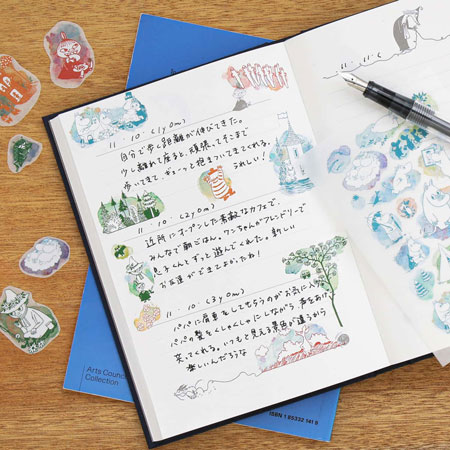 11.10.(1yom)
自分で歩く距離が伸びてきた。
少し離れて座ると、頑張ってそこまで
歩いてきて、ギューっと抱きついてきてくれる。
うれしい！
11.10.(2yom)
近所にオープンした素敵なカフェで、
みんなで朝ごはん。ワンちゃんがフレンドリーで
息子くんとずっと遊んでくれた。新しい
お友達ができてよかったね！
11.10.(3yom)
パパに肩車をしてもらうのがお気に入り。
パパの髪をくしゃくしゃにしながら、声をあげて
笑ってくれる。いつもと見える景色が違うから
楽しいんだろうな
11.11.
Arts Council
Collection
ISBN 1 85332 141 9